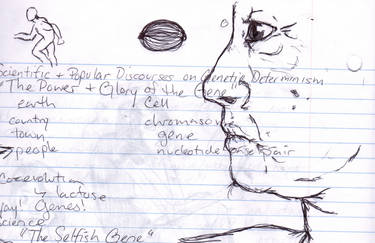 Scientific + Popular Discourses on Genetic Determinism
"The Power + Glory of the Gene"
earth Cell
country chromasome
town gene
people nucleotide base pair
Coevolution
↳ lactose
Yay! Genes!
Science
"The Selfish Gene"